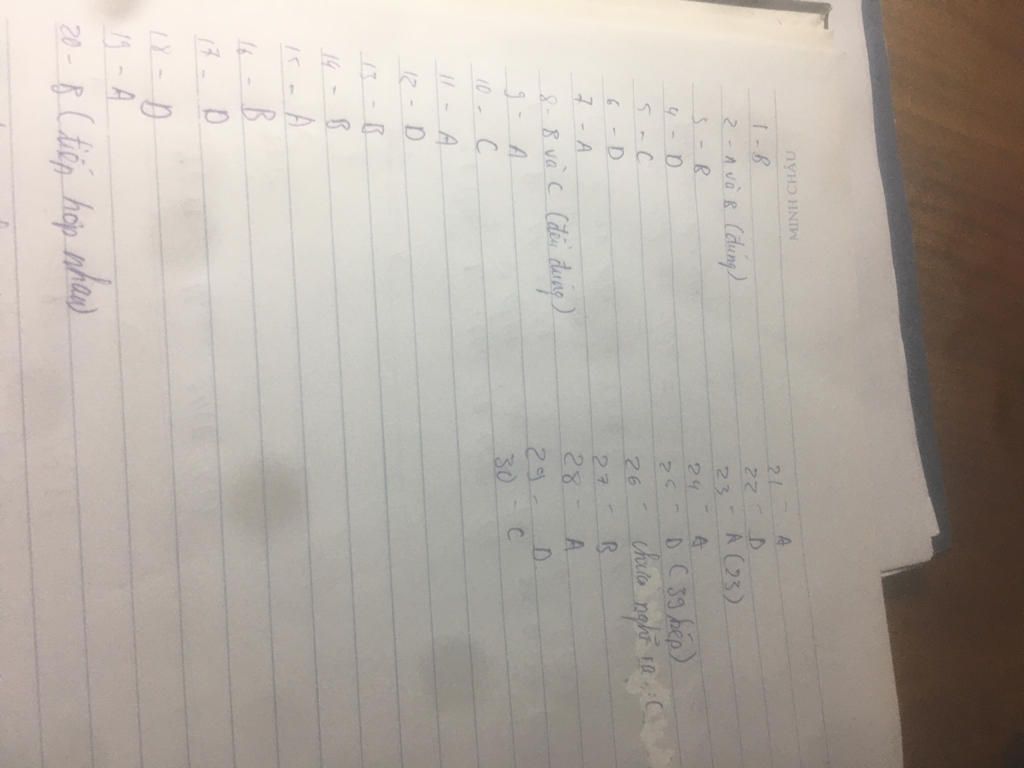 MINH CHÂU
1 - B
2 - A và B (đúng)
3 - B
4 - D
5 - C
6 - D
7 - A
8 - B và C (đều đúng)
9 - A
10 - C
11 - A
12 - D
13 - B
14 - B
15 - A
16 - B
17 - D
18 - D
19 - A
20 - B (tiếp hợp nhau)
21 - A
22 - D
23 - A (93)
24 - A
25 - D (39 kép)
26 - chưa nghĩ ra :C
27 - B
28 - A
29 - D
30 - C